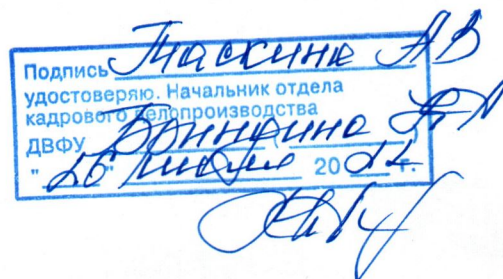 Подпись Таскина АВ
удостоверяю. Начальник отдела
кадрового делопроизводства
ДВФУ
"26" июля 2022 г.